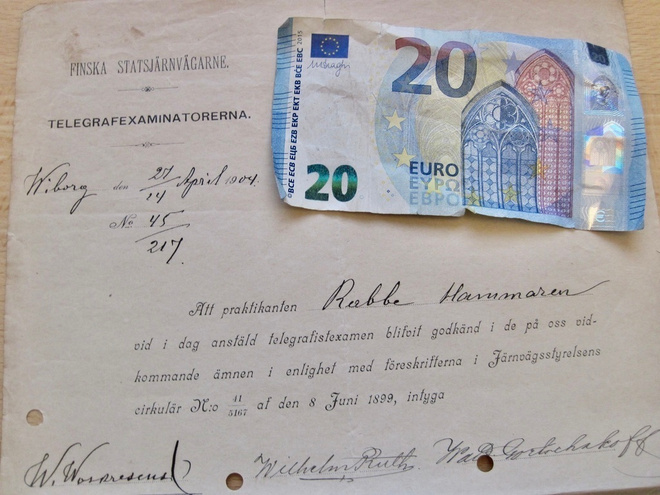 FINSKA STATSJÄRNVÄGARNE.
TELEGRAFEXAMINATORERNA.
Wiborg den 27/14 April 1904.
No 45/217
Att praktikanten Rabbe Hammaren
vid i dag anstäld telegrafistexamen blifvit godkänd i de på oss vid-
kommande ämnen i enlighet med föreskrifterna i Järnvägsstyrelsens
cirkulär N:o 41/5167 af den 8 Juni 1899, intyga
W.
Wilhelm Ruth
Gortschakoff
2015
BCE ECB ЕЦБ EZB EKP EKT EKB BĊE EBC
20
20
EURO
ΕΥΡΩ
ЕВРО